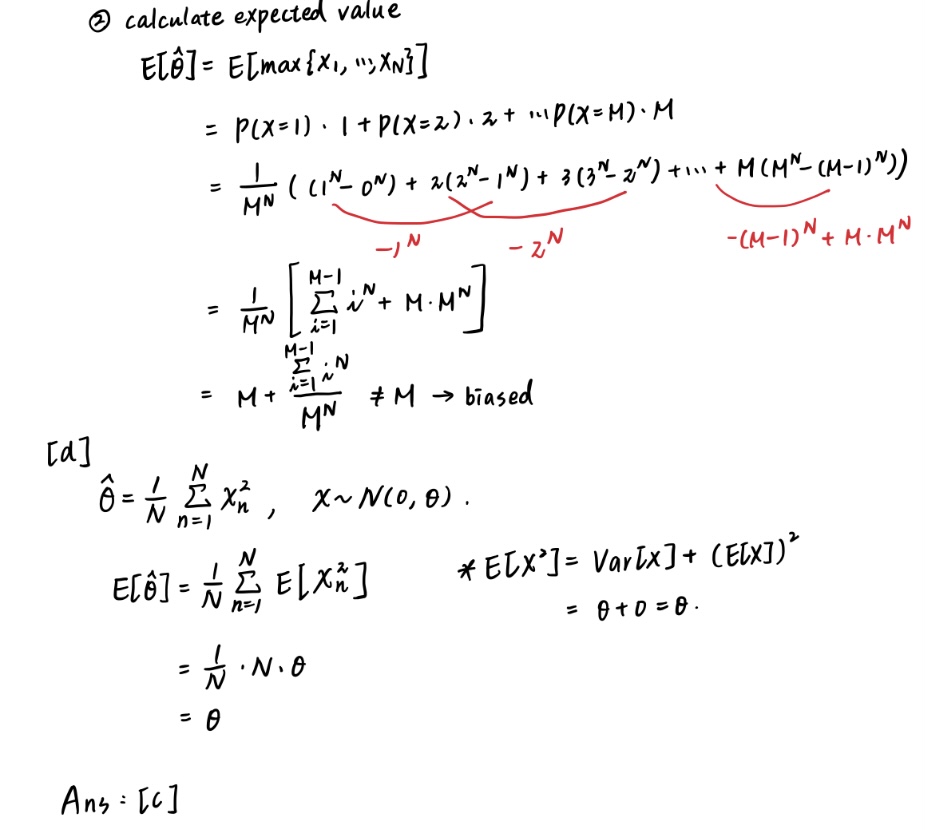 ② calculate expected value
E[θ̂] = E[max{x₁, ..., x_N}]
= P(X=1)·1 + P(X=2)·2 + ... P(X=M)·M
= 1/M^N ((1^N - 0^N) + 2(2^N - 1^N) + 3(3^N - 2^N) + ... + M(M^N - (M-1)^N))
-1^N -2^N -(M-1)^N + M·M^N
= 1/M^N [∑_{i=1}^{M-1} i^N + M·M^N]
= M + (∑_{i=1}^{M-1} i^N)/M^N ≠ M → biased
[d]
θ̂ = 1/N ∑_{n=1}^{N} x_n², X~N(0, θ).
E[θ̂] = 1/N ∑_{n=1}^{N} E[X_n²] * E[X²] = Var[x] + (E[x])²
= θ + 0 = θ.
= 1/N · N · θ
= θ
Ans : [c]